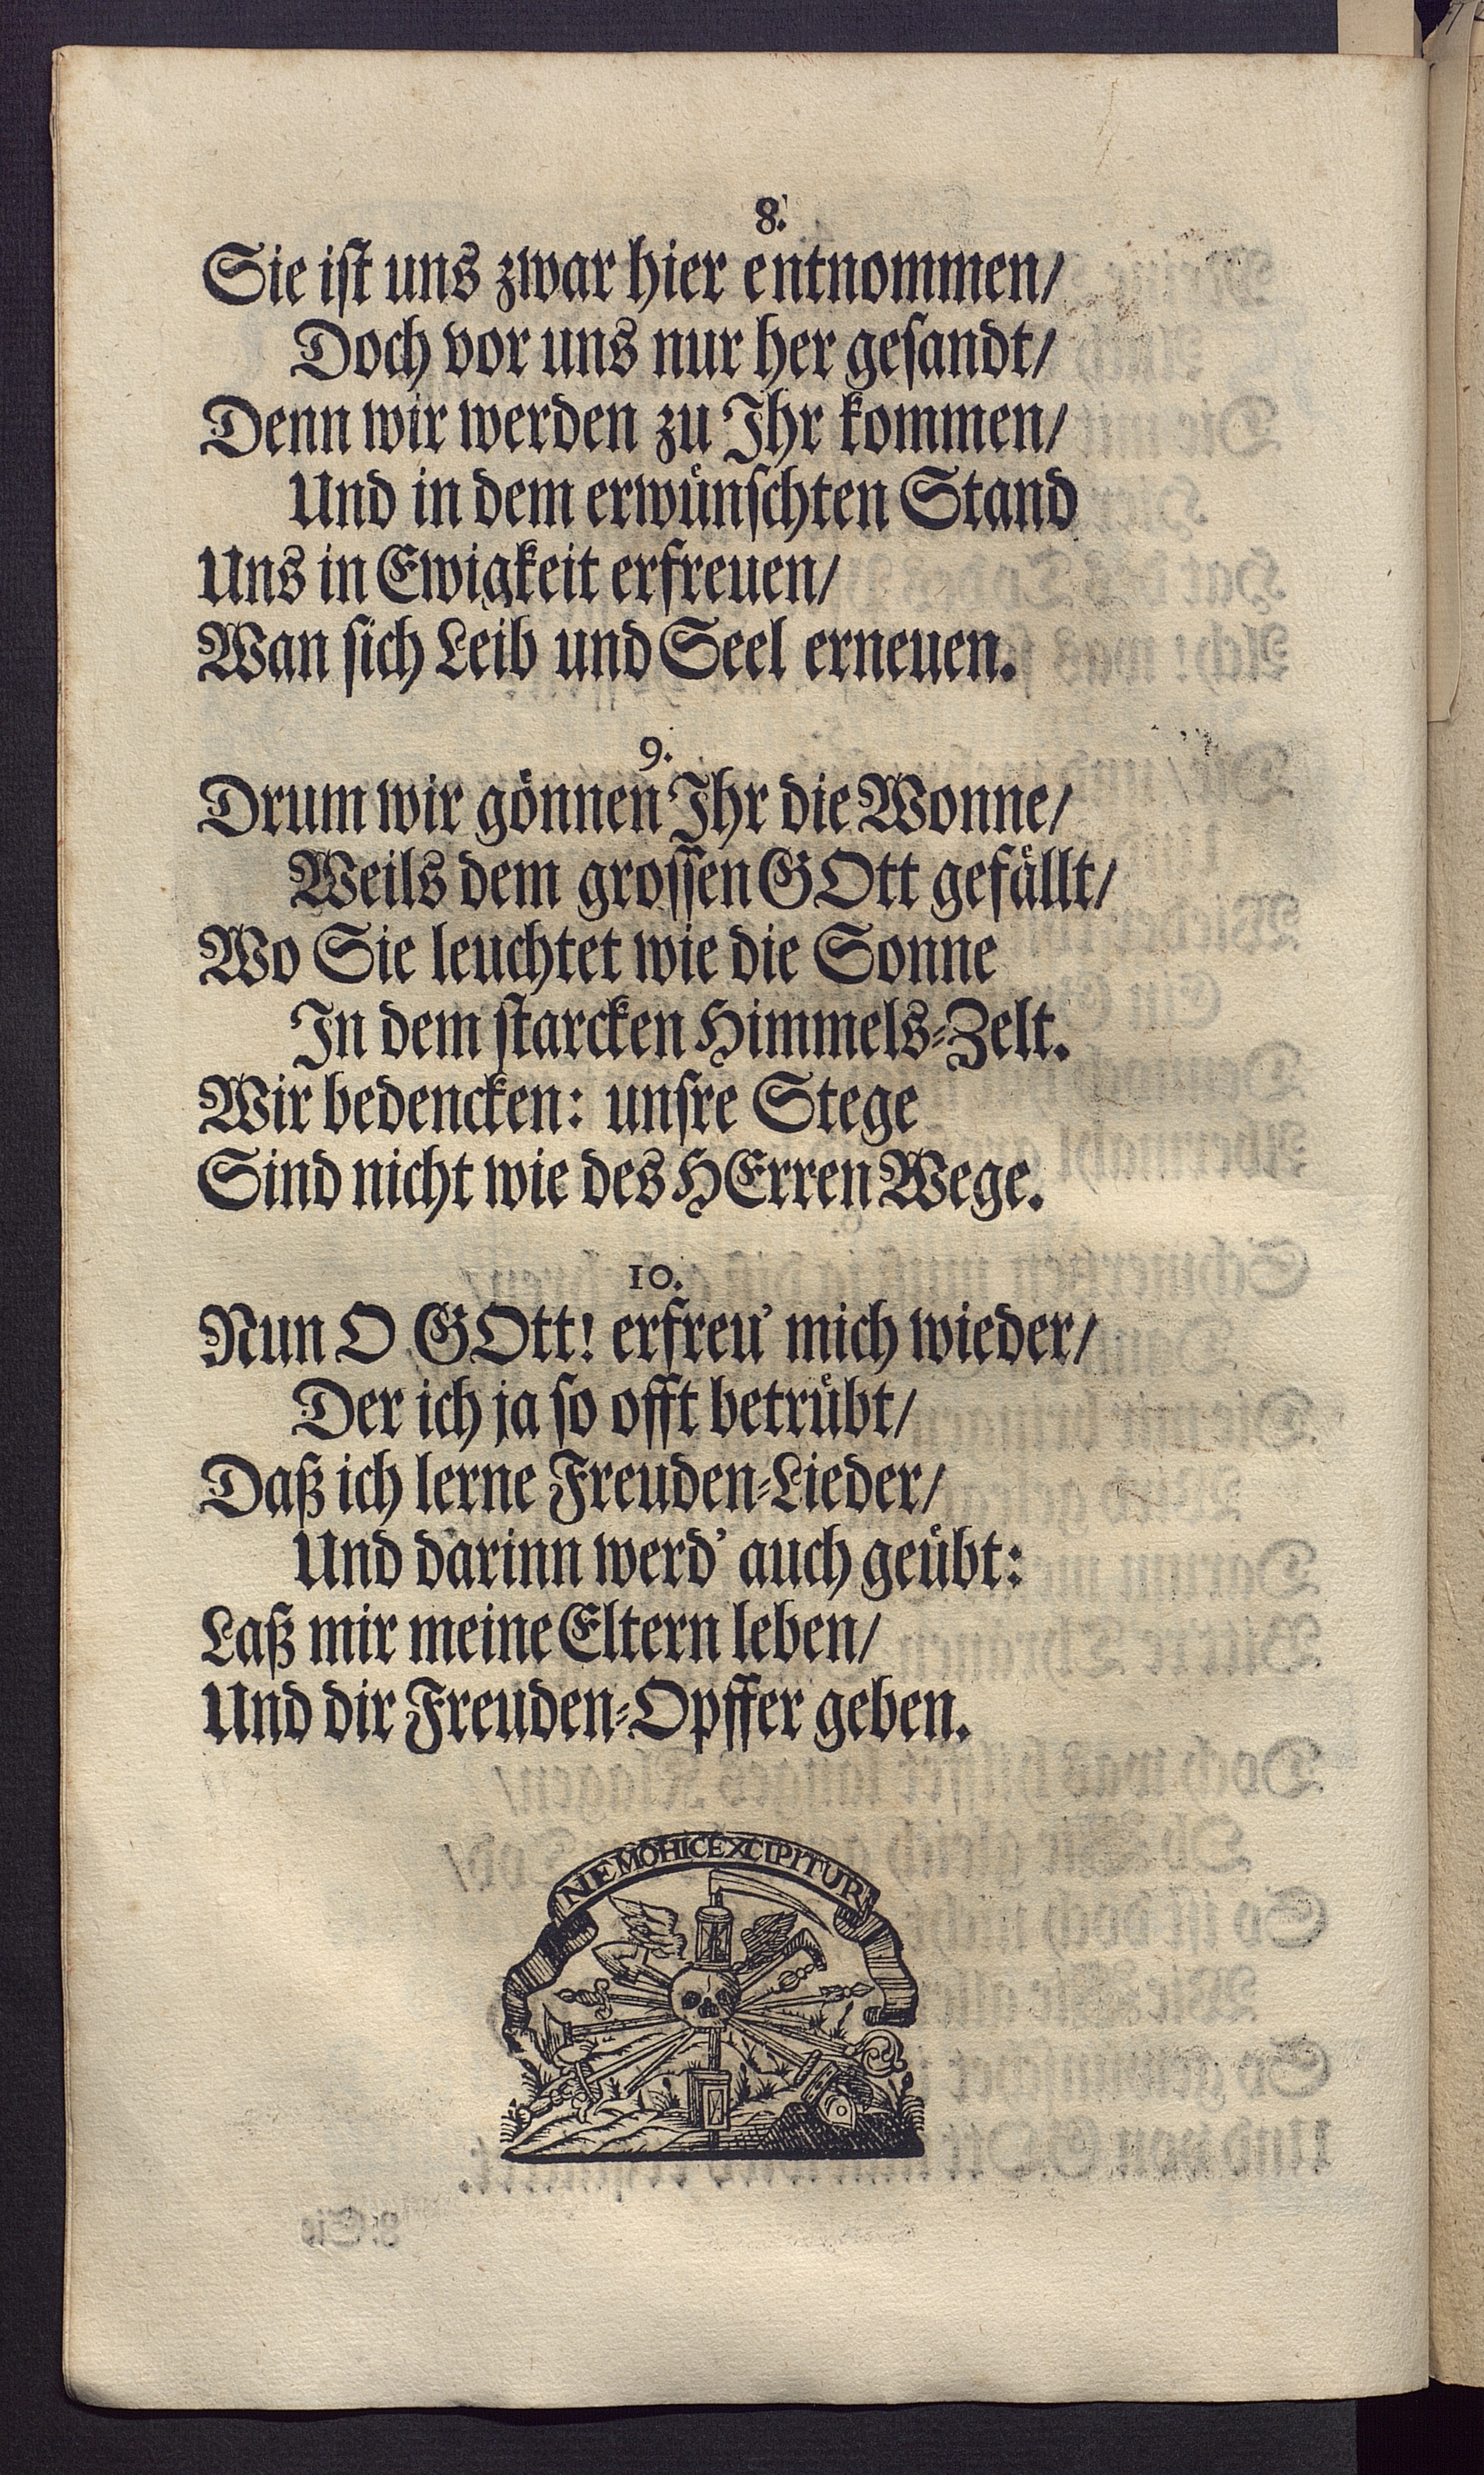 8.
Sie ist uns zwar hier entnommen/
Doch vor uns nur her gesandt/
Denn wir werden zu Ihr kommen/
Und in dem erwünschten Stand
Uns in Ewigkeit erfreuen/
Wan sich Leib und Seel erneuen.
9.
Drum wir gönnen Ihr die Wonne/
Weils dem grossen GOtt gefällt/
Wo Sie leuchtet wie die Sonne
In dem starcken Himmels-Zelt.
Wir bedencken: unsre Stege
Sind nicht wie des HErren Wege.
10.
Nun O GOtt! erfreu' mich wieder/
Der ich ja so offt betrübt/
Daß ich lerne Freuden-Lieder/
Und darinn werd' auch geübt:
Laß mir meine Eltern leben/
Und dir Freuden-Opffer geben.
NEMO HIC EXCIPITUR